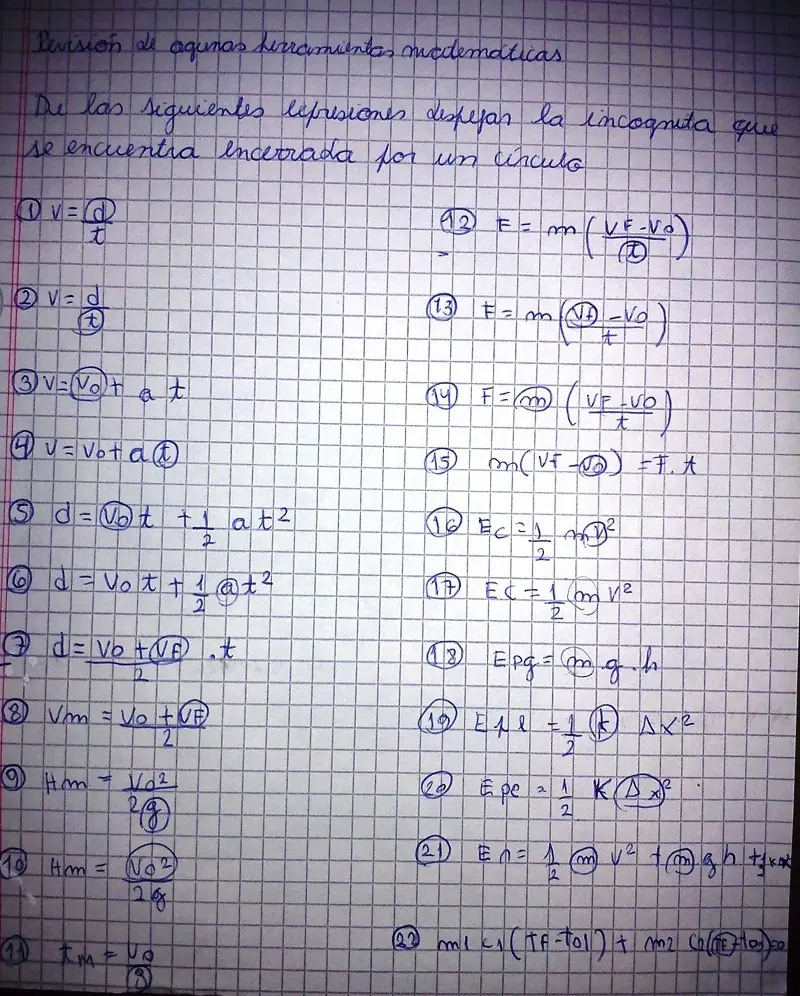 Revisión de agunas herramientas matemáticas
De las siguientes expresiones despejar la incognita que
se encuentra encerrada por un circulo
① V = d/t
② V = d/t
③ V = Vo + a t
④ V = Vo + a t
⑤ d = Vo t + 1/2 a t²
⑥ d = Vo t + 1/2 a t²
⑦ d = (Vo + VF)/2 . t
⑧ Vm = (Vo + VF)/2
⑨ Hm = Vo²/2g
⑩ Hm = Vo²/2g
⑪ tm = Vo/g
⑫ F = m ((VF - Vo)/t)
⑬ F = m ((Vf - Vo)/t)
⑭ F = m ((VF - Vo)/t)
⑮ m(VF - Vo) = F. t
⑯ Ec = 1/2 m v²
⑰ EC = 1/2 m v²
⑱ Epg = m . g . h
⑲ Epe = 1/2 k Δx²
⑳ Epe = 1/2 K (Δx)²
㉑ = 1/2 m v² + m g h
㉒ m1 c1 (TF - To1) + m2